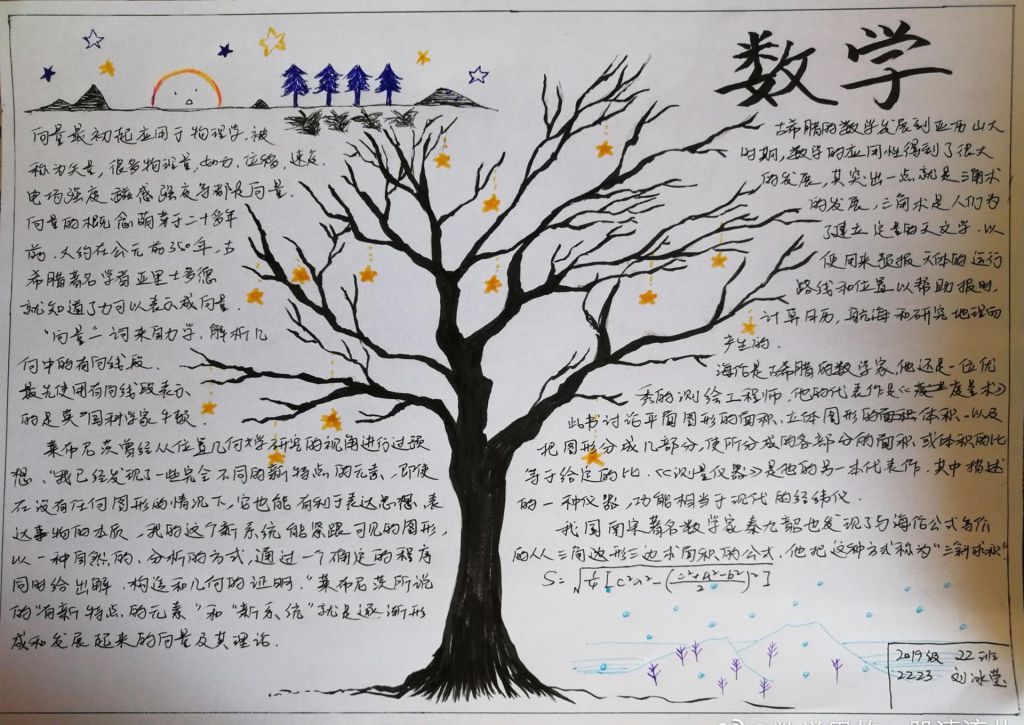 数学
向量最初起应用于物理学.被
称为矢量,很多物理量,如力、位移、速度、
电场强度、磁感强度等都是向量.
向量的概念萌芽于二千多年
前.大约在公元前350年,古
希腊著名学者亚里士多德
就知道了力可以表示成向量.
“向量”一词来自力学、解析几
何中的有向线段.
最先使用有向线段表示
的是英国科学家牛顿.
莱布尼茨曾经从位置几何学研究的视角进行过预
想.“我已经发现了一些完全不同的新特点的元素,即使
在没有任何图形的情况下,它也能有利于表达思想、表
达事物的本质.我的这个新系统能紧跟可见的图形,
以一种自然的、分析的方式,通过一个确定的程序
同时给出解、构造和几何的证明.”莱布尼茨所说
的“有新特点的元素”和“新系统”就是逐渐形
成和发展起来的向量及其理论.
古希腊的数学发展到亚历山大
时期,数学的应用性得到了很大
的发展,其突出一点就是三角术
的发展,三角术是人们为
了建立定量的天文学.以
便用来预报天体的运行
路线和位置以帮助报时,
计算日历,航海和研究地理而
产生的.
海伦是古希腊的数学家,他还是一位优
秀的测绘工程师,他的代表作是《度量术》
此书讨论平面图形的面积、立体图形的面积、体积.以及
把图形分成几部分,使所分成的各部分的面积或体积的比
等于给定的比.《测量仪器》是他的另一本代表作.其中描述
的一种仪器,功能相当于现代的经纬仪.
我国南宋著名数学家秦九韶也发现了与海伦公式等价
的从三角边形三边求面积的公式.他把这种方式称为“三斜求积”
S=√¼[c²a²-(c²+a²-b²/2)²]
2019级 22班
2223 刘冰莹